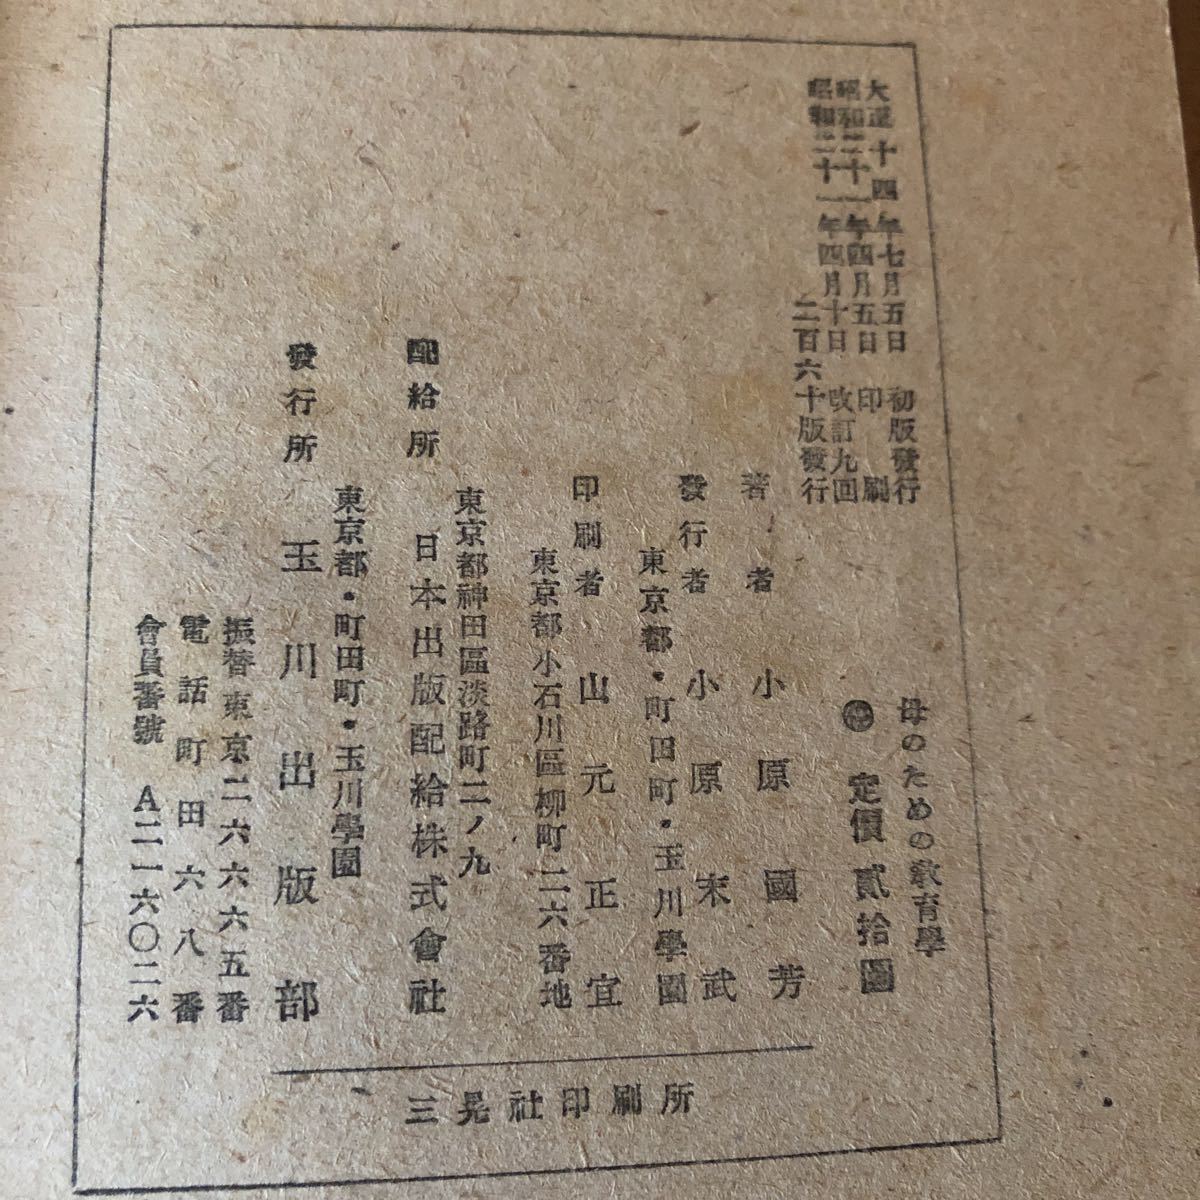 大正十四年七月五日 初版發行
昭和二十一年四月五日 印刷
昭和二十一年四月十日 改訂九回
二百六十版發行
母のための教育學
定價 貳拾圓
著者 小原國芳
發行者 小原末武
東京都・町田町・玉川學園
印刷者 山元正宜
東京都小石川區柳町二六番地
東京都神田區淡路町二ノ九
配給所 日本出版配給株式會社
東京都・町田町・玉川學園
發行所 玉川出版部
振替東京二六六六五番
電話町田六八番
會員番號 A二一六〇二六
三晃社印刷所